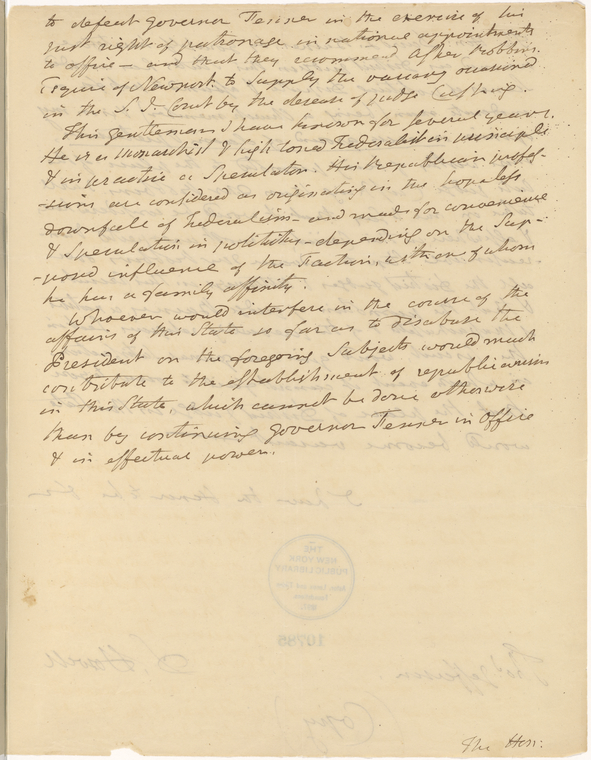 to defeat governor Fenner in the exercise of his
just right of patronage in national appointments
to office — and that they recommend Asher Robbins
Esquire of Newport to supply the vacancy occasioned
in the S. J. Court by the decease of Judge Cushing.
This gentleman I have known for several years.
He is a Monarchist & high toned Federalist in principle
& in practice a Speculator. His Republican profes-
-sions are considered as originating in the hopeless
downfall of Federalism — and made for convenience
& Speculation in politicks — depending on the Sup-
-posed influence of the Faction, with one of whom
he has a family affinity.
Whoever would interfere in the course of the
affairs of this State so far as to disabuse the
President on the foregoing Subjects would much
contribute to the establishment of republicanism
in this State, which cannot be done otherwise
than by continuing governor Fenner in Office
& in effectual power.
THE
NEW YORK
PUBLIC LIBRARY
10785
D Howell
Thos Jefferson.
(Copy)
The Hon: